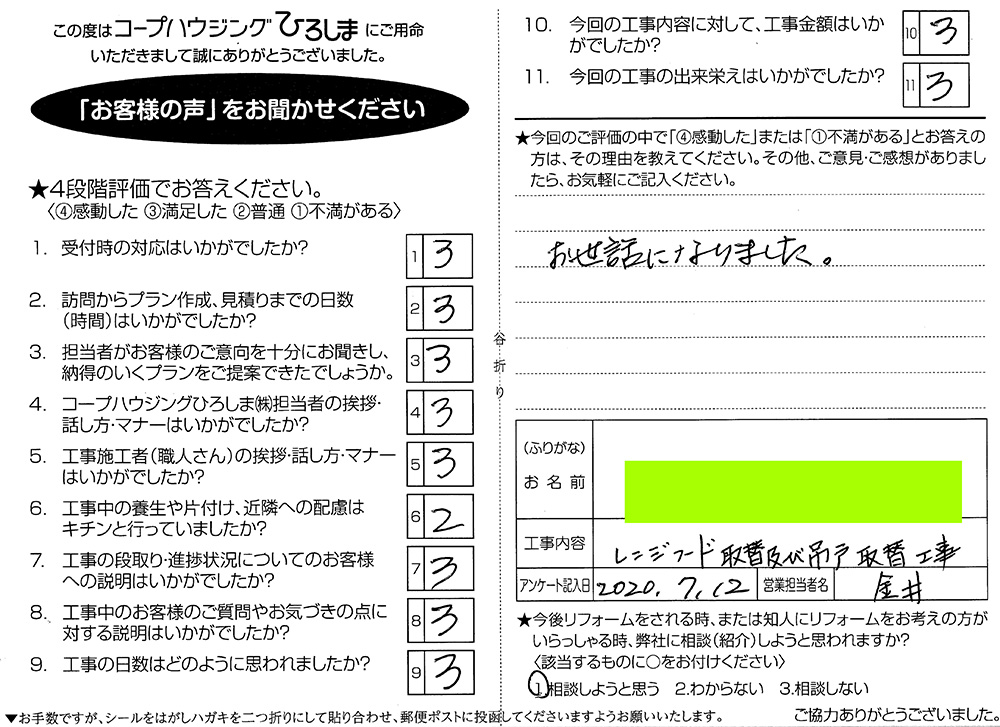 この度はコープハウジングひろしまにご用命
いただきまして誠にありがとうございました。
「お客様の声」をお聞かせください
★4段階評価でお答えください。
〈④感動した ③満足した ②普通 ①不満がある〉
1. 受付時の対応はいかがでしたか? 1 3
2. 訪問からプラン作成、見積りまでの日数
（時間）はいかがでしたか? 2 3
3. 担当者がお客様のご意向を十分にお聞きし、
納得のいくプランをご提案できたでしょうか。 3 3
4. コープハウジングひろしま㈱担当者の挨拶・
話し方・マナーはいかがでしたか? 4 3
5. 工事施工者（職人さん）の挨拶・話し方・マナー
はいかがでしたか? 5 3
6. 工事中の養生や片付け、近隣への配慮は
キチンと行っていましたか? 6 2
7. 工事の段取り・進捗状況についてのお客様
への説明はいかがでしたか? 7 3
8. 工事中のお客様のご質問やお気づきの点に
対する説明はいかがでしたか? 8 3
9. 工事の日数はどのように思われましたか? 9 3
▼お手数ですが、シールをはがしハガキを二つ折りにして貼り合わせ、郵便ポストに投函してくださいますようお願いいたします。
谷折り
10. 今回の工事内容に対して、工事金額はいか
がでしたか? 10 3
11. 今回の工事の出来栄えはいかがでしたか? 11 3
★今回のご評価の中で「④感動した」または「①不満がある」とお答えの
方は、その理由を教えてください。その他、ご意見・ご感想がありまし
たら、お気軽にご記入ください。
お世話になりました。
（ふりがな）
お名前
工事内容 レンジフード取替及び吊戸取替工事
アンケート記入日 2020.7.12 営業担当者名 金井
★今後リフォームをされる時、または知人にリフォームをお考えの方が
いらっしゃる時、弊社に相談（紹介）しようと思われますか?
〈該当するものに○をお付けください〉
1.相談しようと思う 2.わからない 3.相談しない
ご協力ありがとうございました。